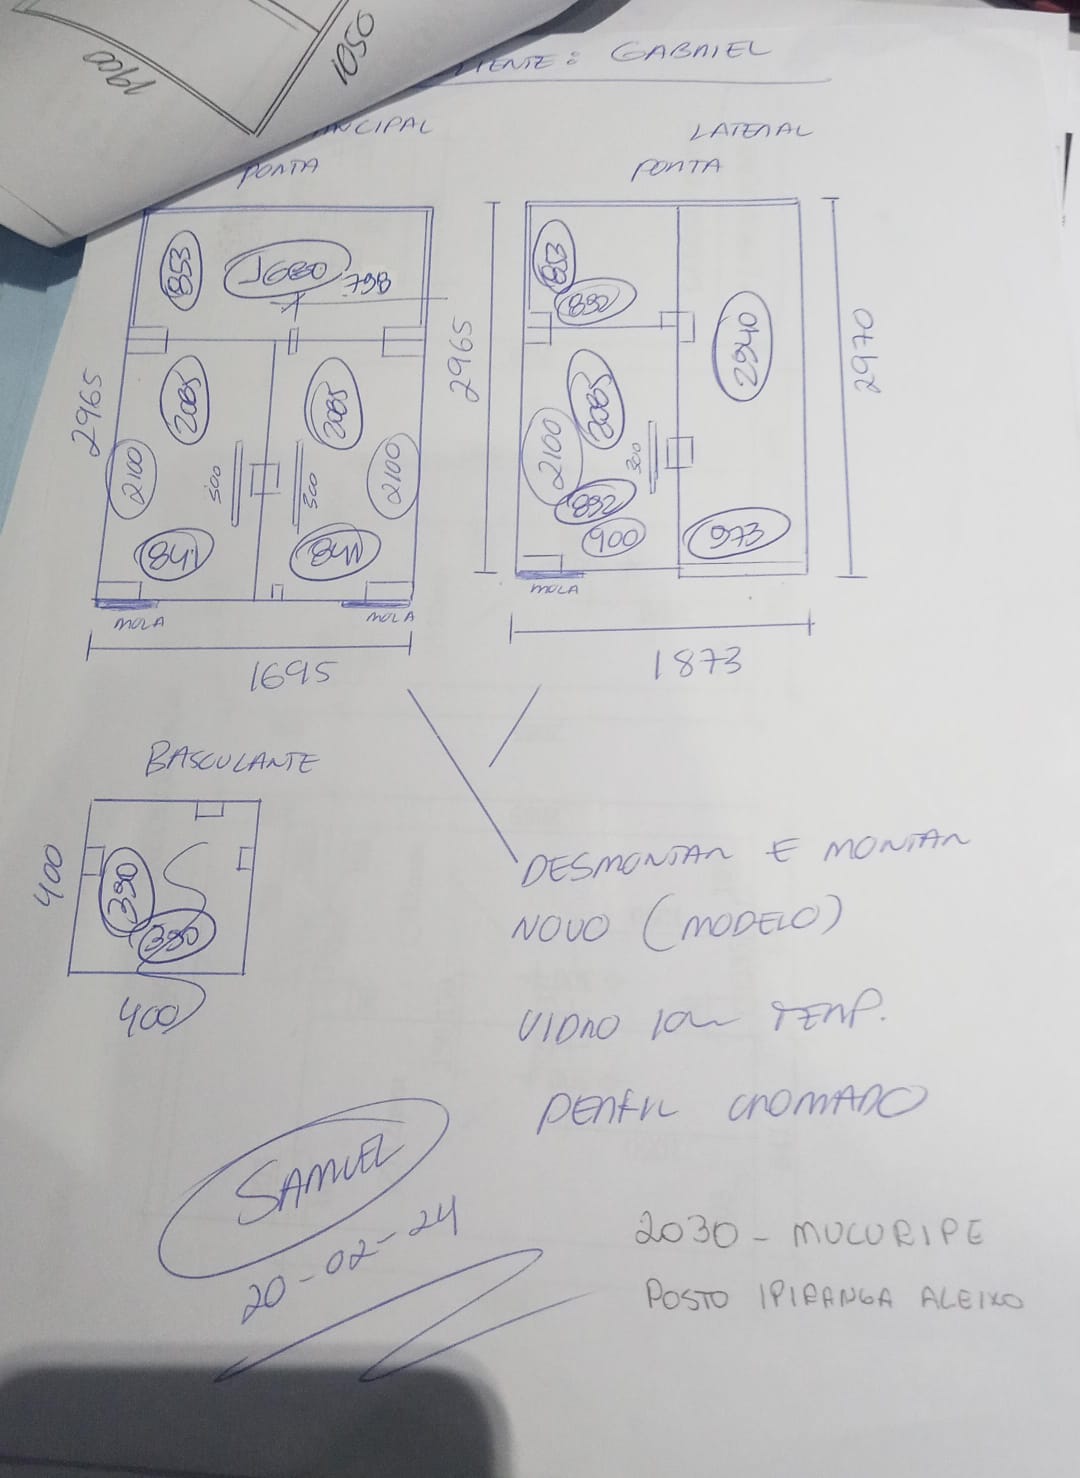 1900
1050
CLIENTE: GABRIEL
PRINCIPAL
PORTA
LATERAL
PORTA
853
1680
798
2965
2085
2085
2100
2100
500
500
841
841
MOLA
MOLA
1695
2965
853
890
2940
2970
2085
2100
300
892
900
973
MOLA
1873
BASCULANTE
400
390
390
400
DESMONTAR E MONTAR
NOVO (MODELO)
VIDRO 10m TEMP.
PERFIL CROMADO
SAMUEL
20-02-24
2030 - MUCURIPE
POSTO IPIRANGA ALEIXO